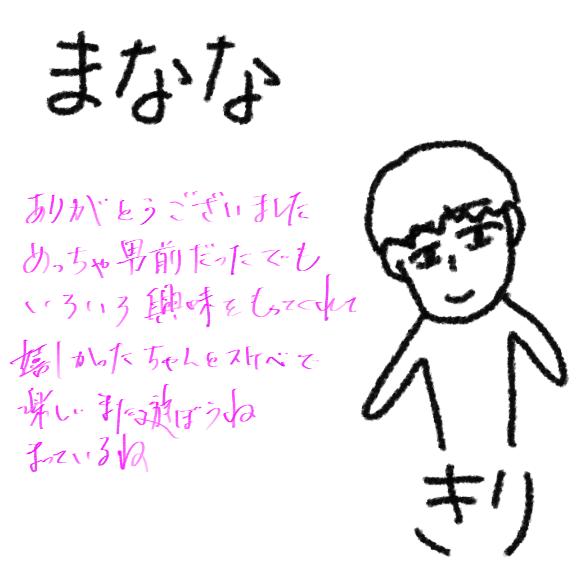 まなな
ありがとうございました
めっちゃ男前だったでも
いろいろ興味をもってくれて
嬉しかったちゃんとスケベで
楽しいまた遊ぼうね
まっているね
きり